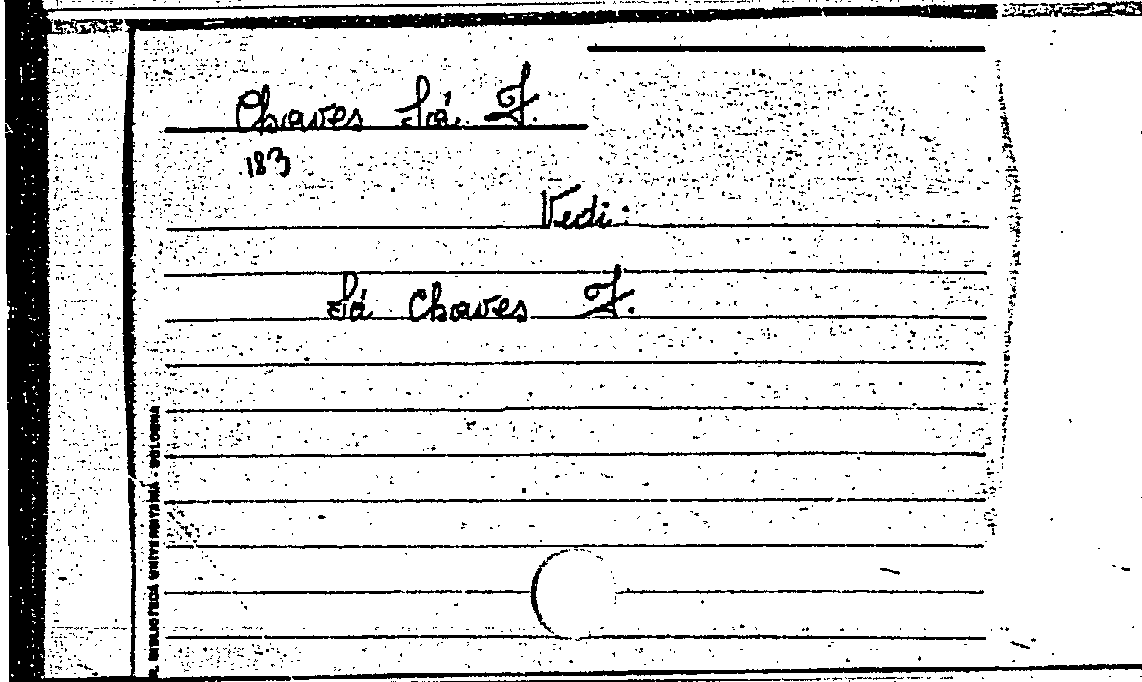 Chaves Sá F.
183
Vedi:
Sá Chaves F.
R. BIBLIOTECA UNIVERSITARIA - BOLOGNA